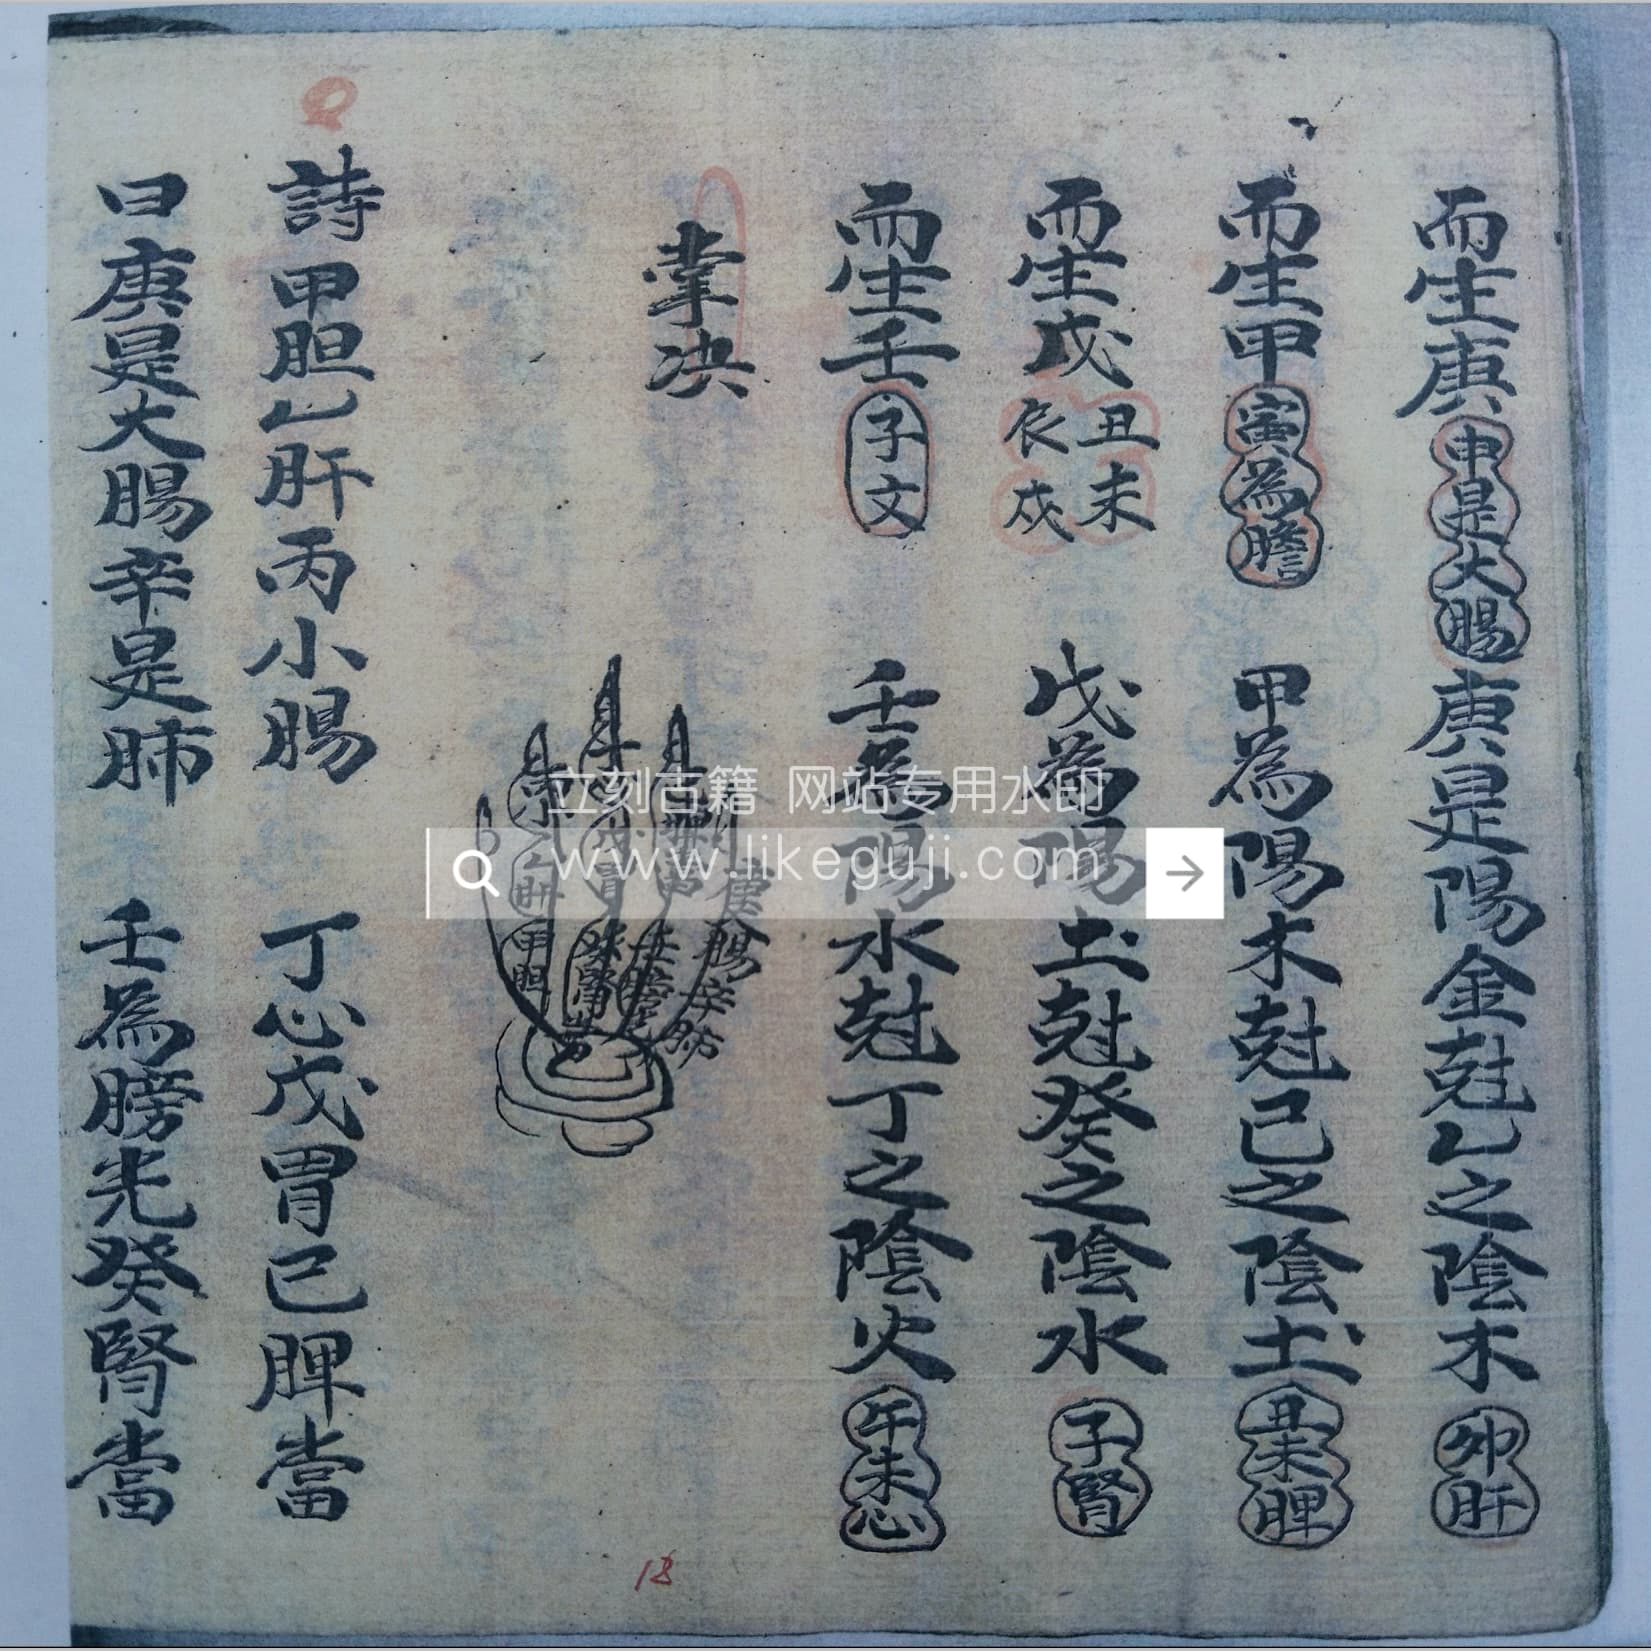 而生庚申是大腸庚是陽金尅乙之陰木卯肝
而生甲寅為膽甲為陽木尅己之陰土丑未脾
而生戊丑未辰戌戊為陽土尅癸之陰水子腎
而生壬子文壬為陽水尅丁之陰火午未心
掌决
庚腸辛肺
壬膀光
戊胃癸腎
乙肝甲胆
詩甲胆乙肝丙小腸丁心戊胃己脾當
曰庚是大腸辛是肺壬為膀光癸腎當
18
立刻古籍 网站专用水印
www.likeguji.com